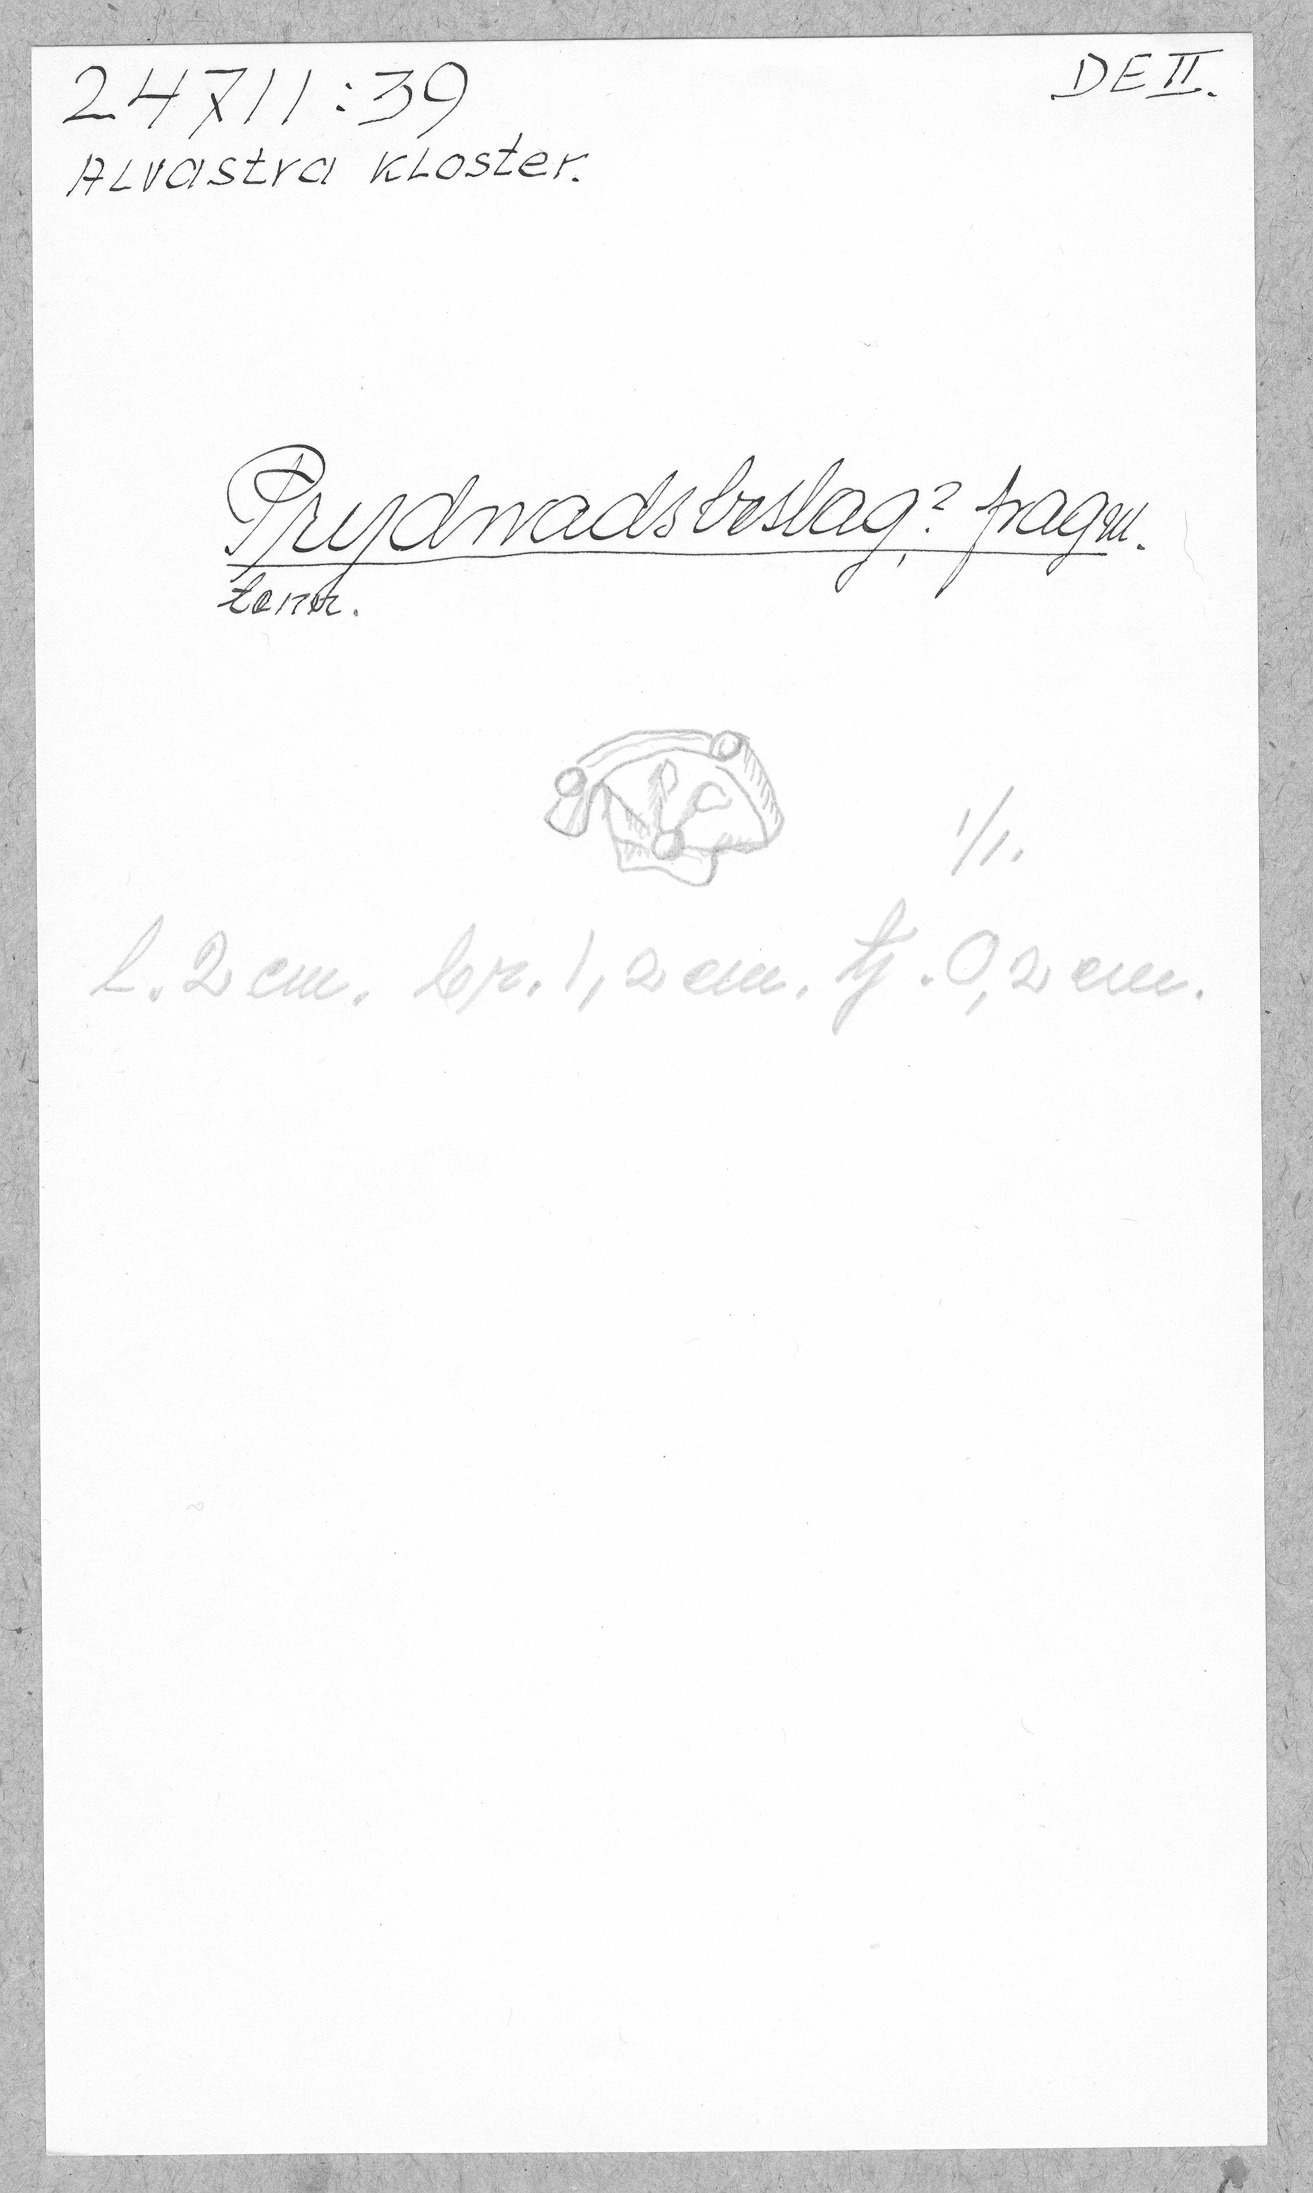 24711:39
DE II.
Alvastra kloster.
Prydnadsbeslag? fragm.
1/1.
L. 2 cm. br. 1,2 cm. tj. 0,2 cm.